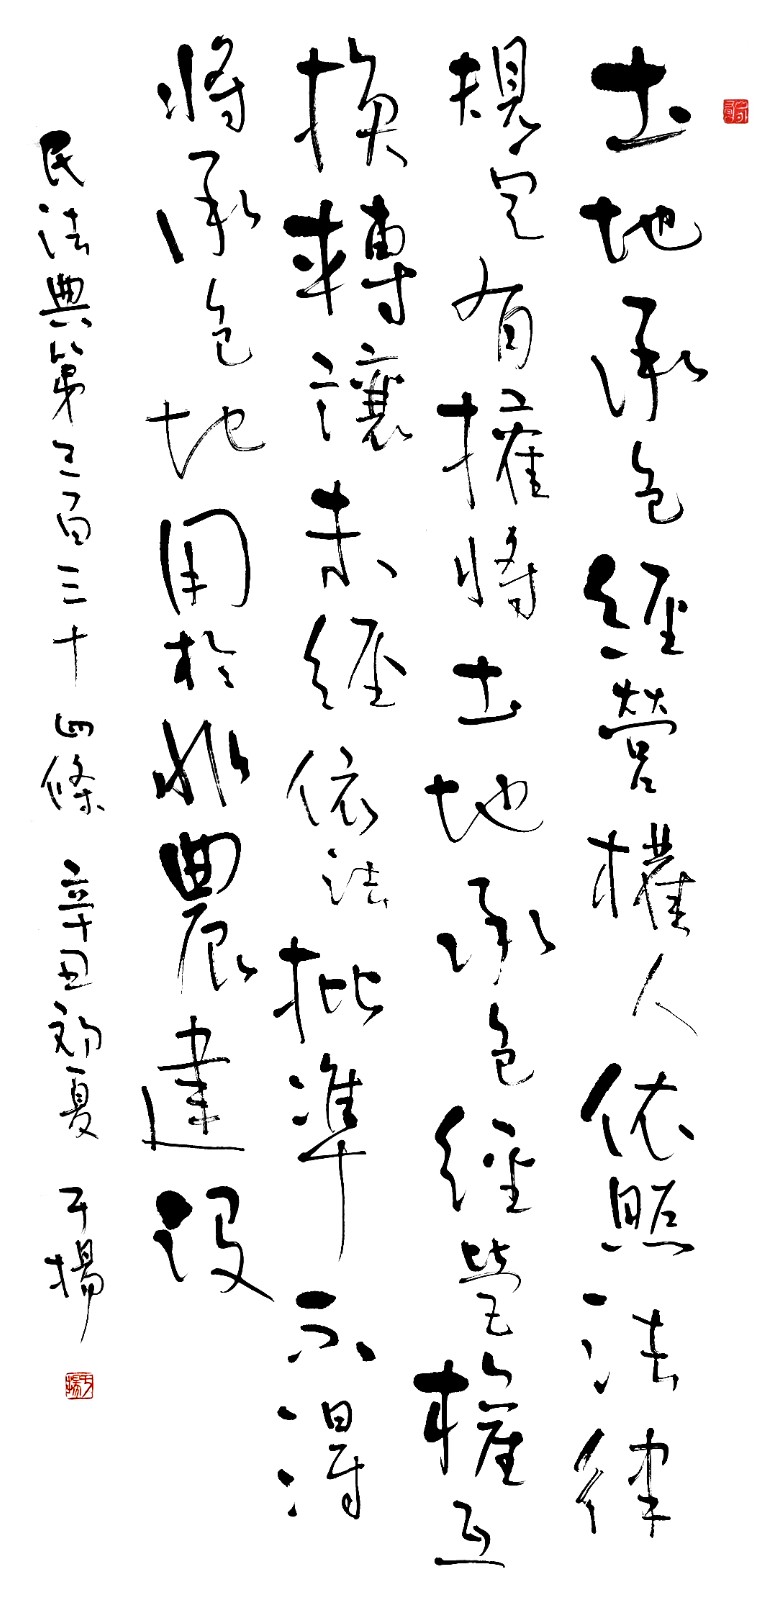 土地承包經營權人依照法律
規定有權將土地承包經營權互
換轉讓未經依法批準不得
將承包地用於非農建設
民法典第三百三十四條 辛丑初夏 于揚